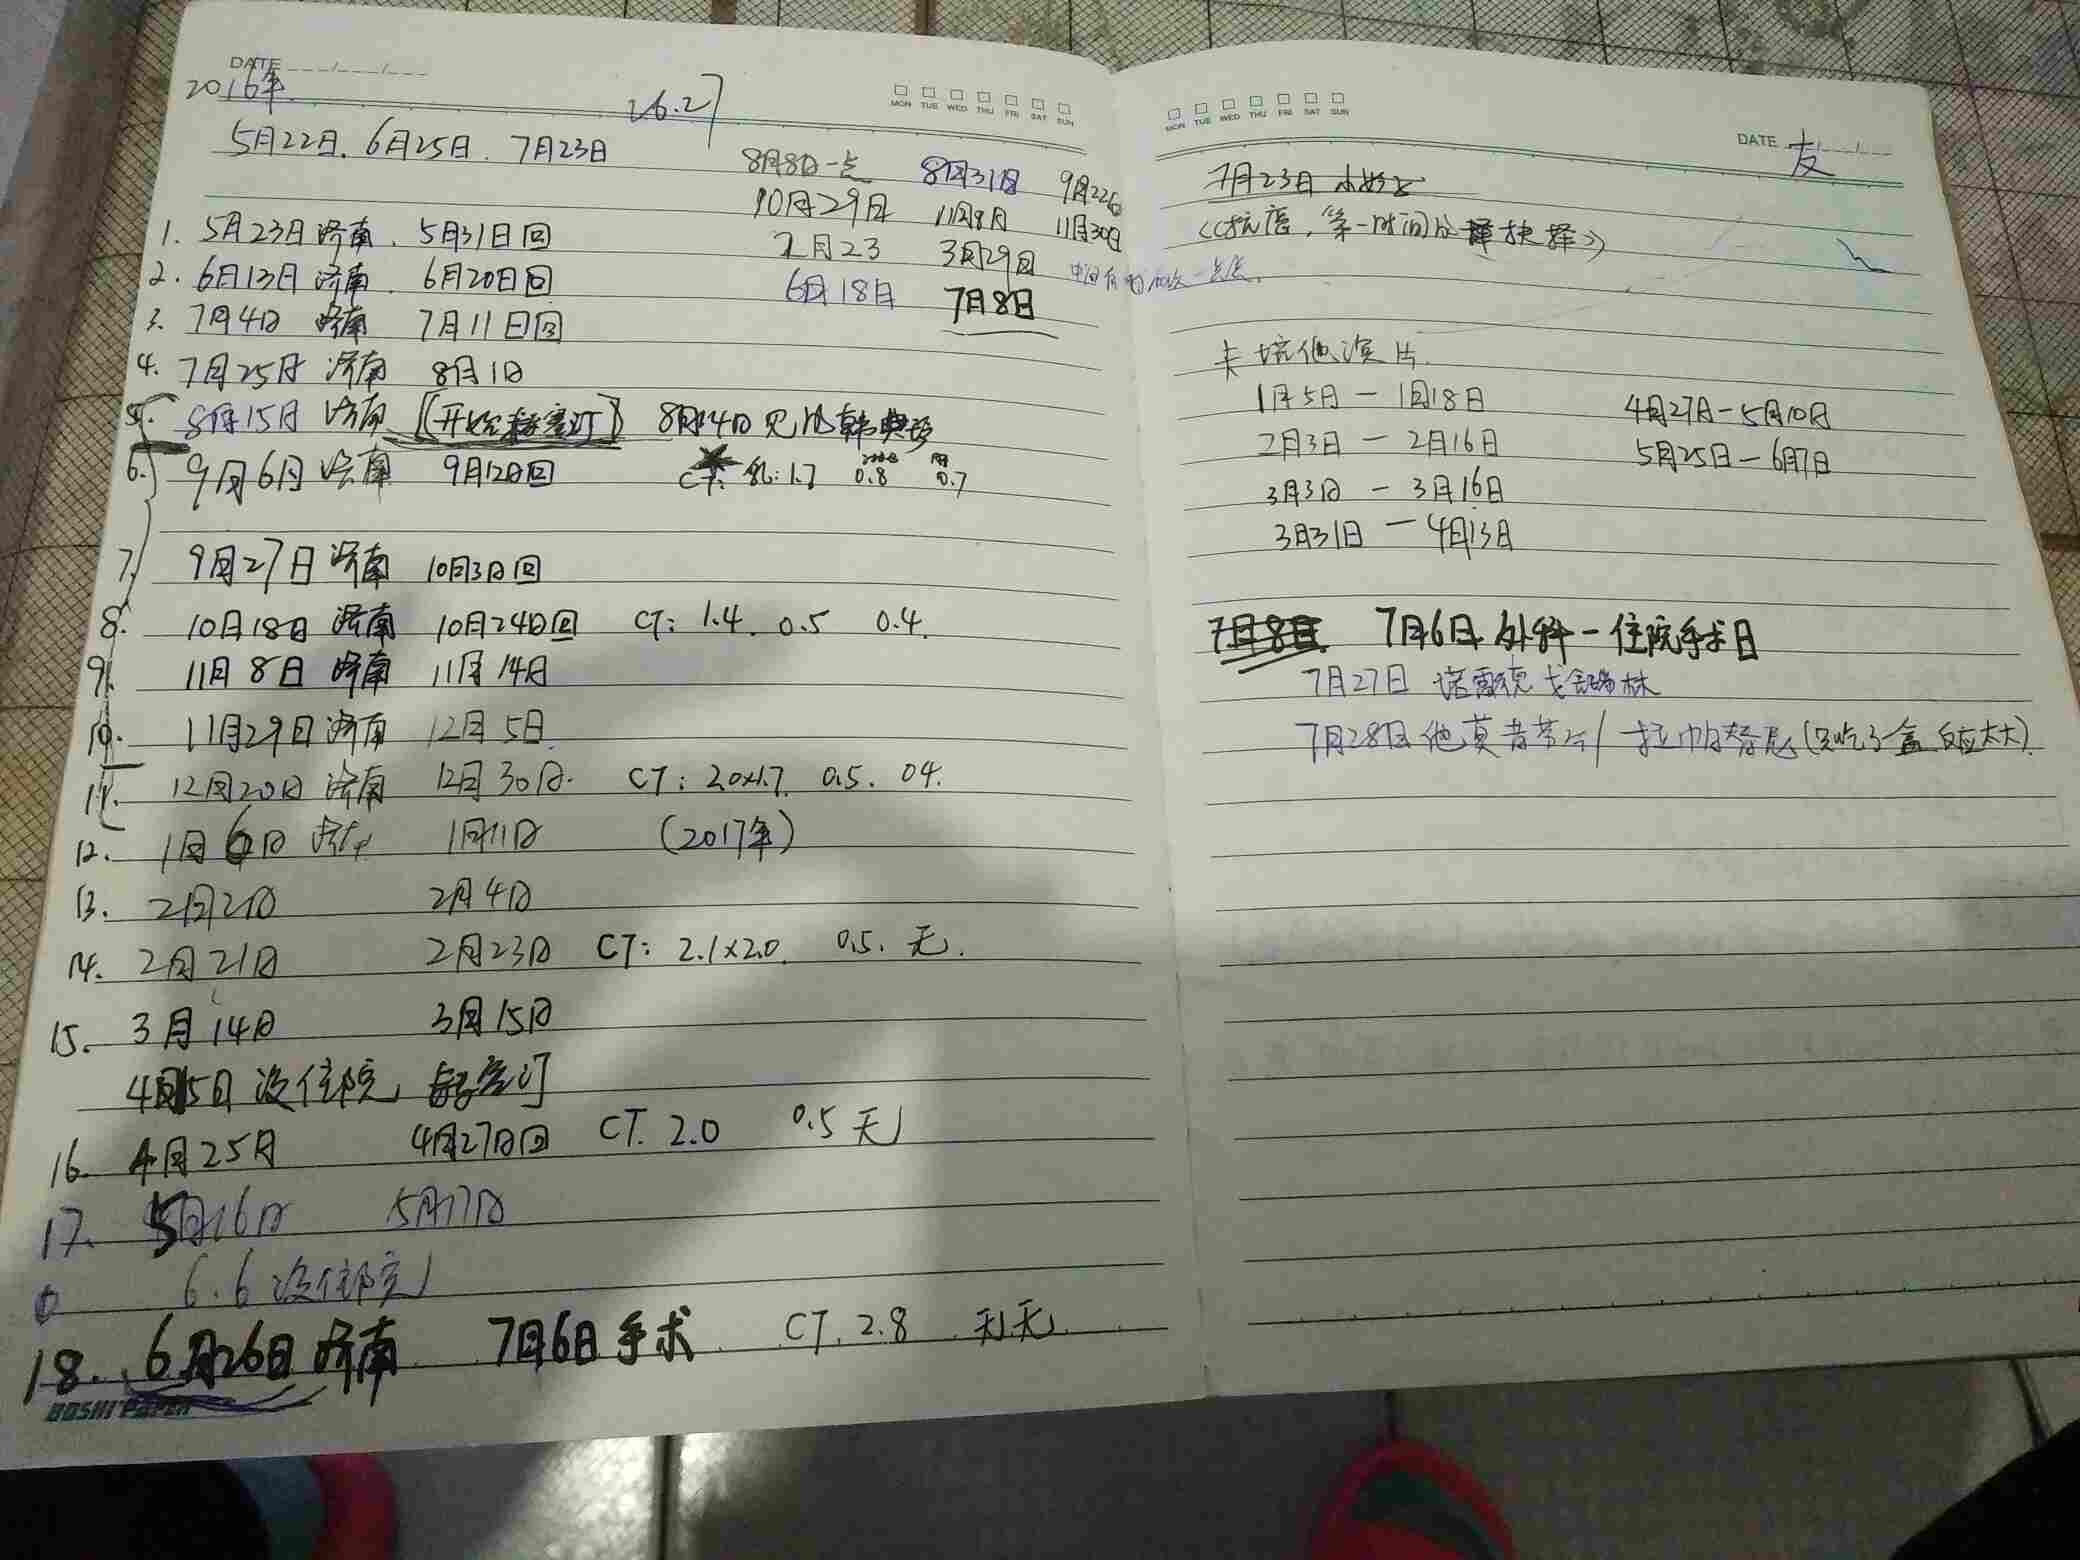 DATE
2016年
26.27
MON TUE WED THU FRI SAT SUN
5月22日. 6月25日. 7月23日
8月8日一点 8月31日 9月22日
10月29日 11月8日 11月30日
2月23 3月29日
6月18日 7月8日
1. 5月23日 济南. 5月31日回
2. 6月13日 济南. 6月20日回
3. 7月4日 济南 7月11日回
4. 7月25日 济南 8月1日
5. 8月15日 济南 8月14日见
6. 9月6日 济南 9月12日回 CT: 乳:1.7 0.8 0.7
7. 9月27日 济南 10月3日回
8. 10月18日 济南 10月24日回 CT: 1.4. 0.5 0.4.
9. 11月8日 济南 11月14日
10. 11月29日 济南 12月5日.
11. 12月20日 济南 12月30日. CT: 2.0x1.7. 0.5. 04.
12. 1月6日 1月11日 (2017年)
13. 2月2日 2月4日
14. 2月21日 2月23日 CT: 2.1×2.0. 0.5. 无.
15. 3月14日 3月15日
4月5日 没住院,
16. 4月25日 4月27日回 CT. 2.0 0.5 无
17. 5月16日 5月17日
6.6 没住院
18. 6月26日 济南 7月6日 手术 CT. 2.8 无. 无.
BOSHI PAPER
MON TUE WED THU FRI SAT SUN
DATE 友
7月23日
《抗癌, 第一时间的抉择》
卡培他滨片.
1月5日 — 1月18日 4月27日 — 5月10日
2月3日 — 2月16日 5月25日 — 6月7日
3月3日 — 3月16日
3月31日 — 4月13日
7月8日 7月6日 外科 — 住院手术日
7月27日 诺雷德 戈舍瑞林
7月28日 他莫昔芬片/ (只吃了一盒 反应太大).